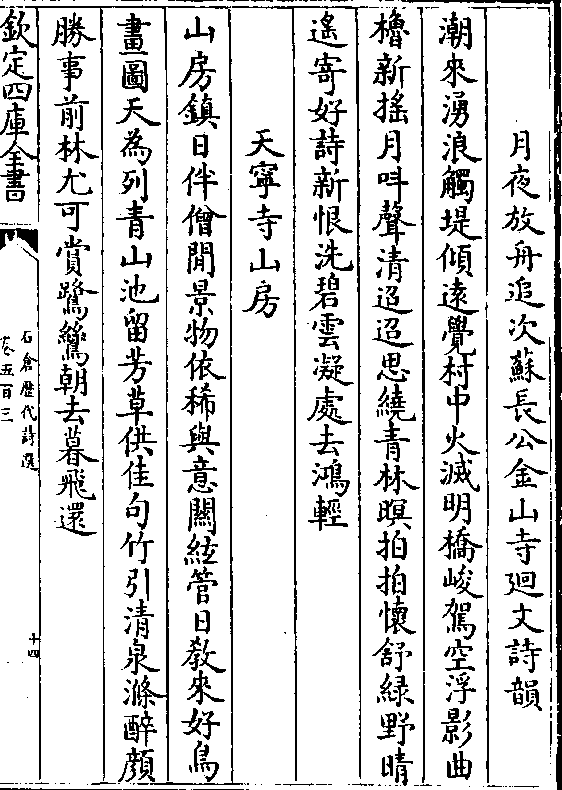 月夜放舟追次蘇長公金山寺廻文詩韻
潮來湧浪觸堤傾遠覺村中火滅明橋峻駕空浮影曲
櫓新搖月呌聲清迢迢思繞青林暝拍拍懷舒緑野晴
遙寄好詩新恨洗碧雲凝處去鴻輕
天寧寺山房
山房鎮日伴僧閒景物依稀與意關絃管日教來好鳥
畫圖天為列青山池留芳草供佳句竹引清泉滌醉顔
勝事前林尤可賞鷺鷥朝去暮飛還
欽定四庫全書
石倉歴代詩選
卷五百三
十四